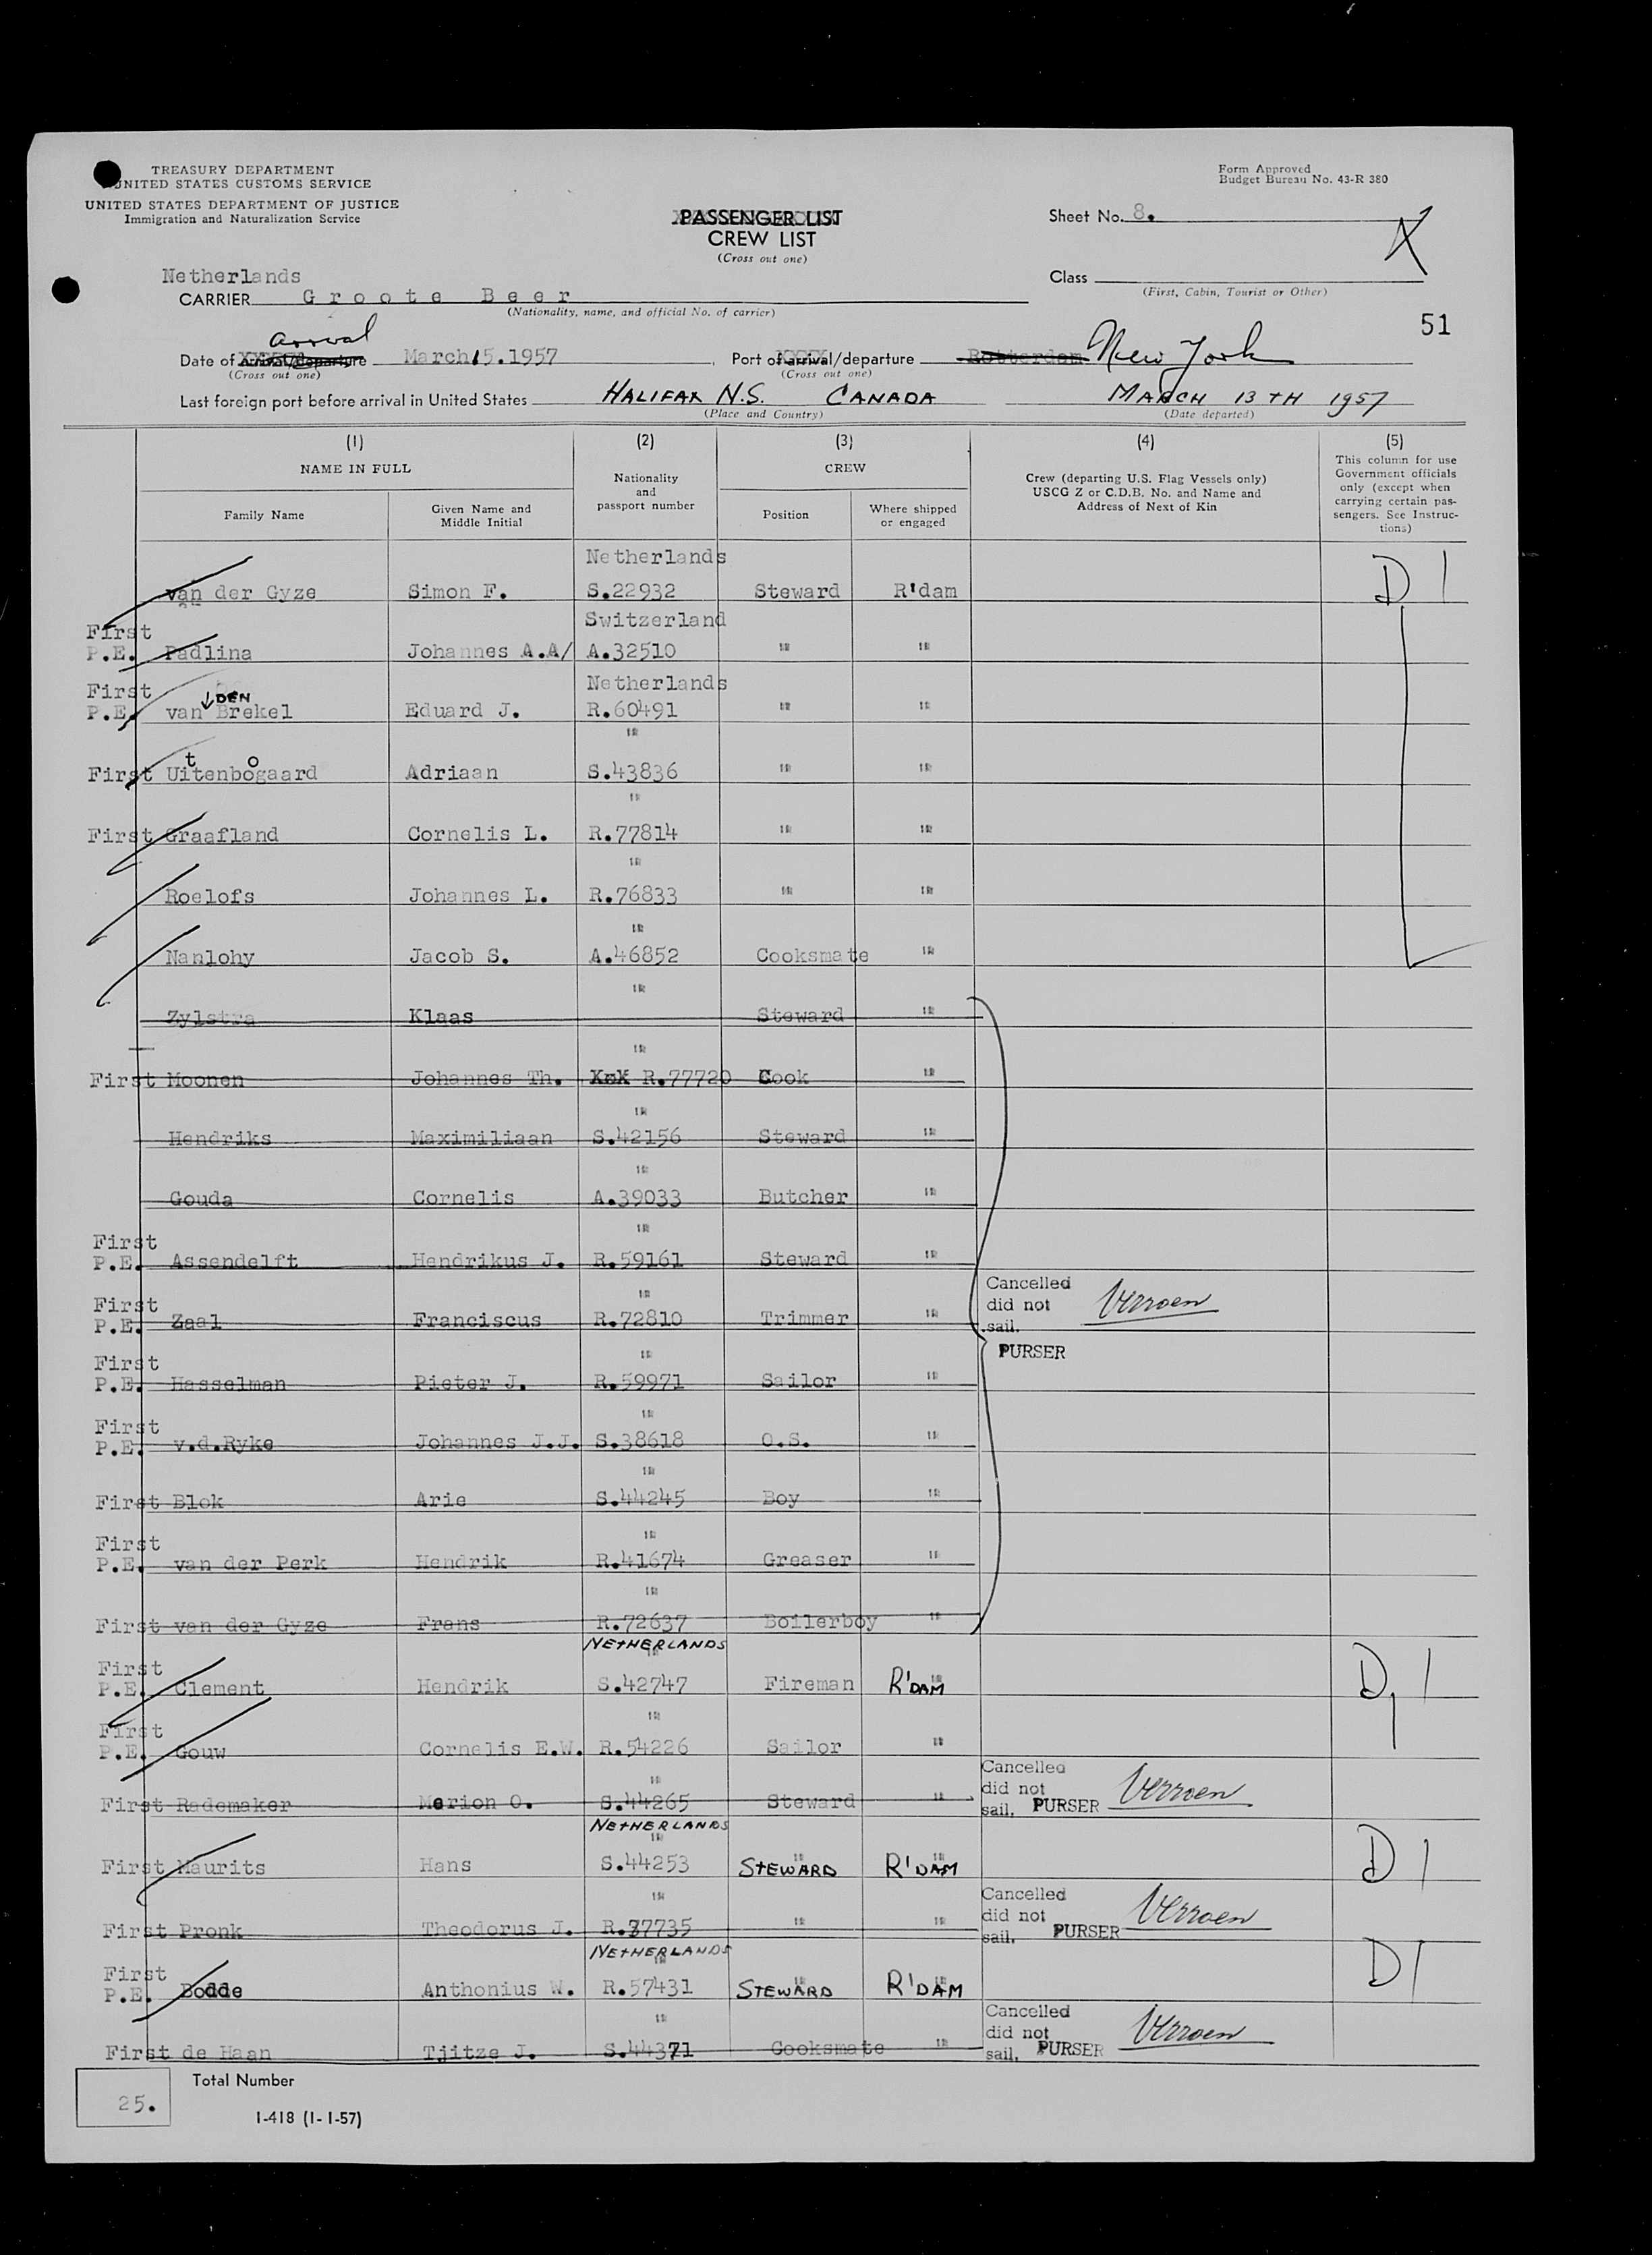 TREASURY DEPARTMENT
UNITED STATES CUSTOMS SERVICE
UNITED STATES DEPARTMENT OF JUSTICE
Immigration and Naturalization Service
Form Approved
Budget Bureau No. 43-R 380
PASSENGER LIST
CREW LIST
(Cross out one)
Sheet No. 8.
X
Netherlands
CARRIER Groote Beer
(Nationality, name, and official No. of carrier)
Class
(First, Cabin, Tourist or Other)
51
arrival
Date of Arrival/departure March 15.1957 Port of arrival/departure Rotterdam New York
(Cross out one) (Cross out one)
Last foreign port before arrival in United States HALIFAX N.S. CANADA MARCH 13TH 1957
(Place and Country) (Date departed)
(1) (2) (3) (4) (5)
NAME IN FULL
Family Name
Given Name and Middle Initial
Nationality and passport number
CREW
Position
Where shipped or engaged
Crew (departing U.S. Flag Vessels only)
USCG Z or C.D.B. No. and Name and
Address of Next of Kin
This column for use
Government officials
only (except when
carrying certain pas-
sengers. See Instruc-
tions)
Netherlands
van der Gyze Simon F. S.22932 Steward R'dam D 1
First Switzerland
P.E. Padlina Johannes A.A/ A.32510 " "
First Netherlands
P.E. van DEN Brekel Eduard J. R.60491 " "
"
First Uittenboogaard Adriaan S.43836 " "
"
First Graafland Cornelis L. R.77814 " "
"
Roelofs Johannes L. R.76833 " "
"
Nanlohy Jacob S. A.46852 Cooksmate "
"
Zylstra Klaas Steward "
"
First Moonen Johannes Th. R.77720 Cook "
"
Hendriks Maximiliaan S.42156 Steward "
"
Gouda Cornelis A.39033 Butcher "
First "
P.E. Assendelft Hendrikus J. R.59161 Steward "
First "
P.E. Zaal Franciscus R.72810 Trimmer "
Cancelled
did not
sail. Verroen
PURSER
First "
P.E. Hasselman Pieter J. R.59971 Sailor "
First "
P.E. v.d.Ryke Johannes J.J. S.38618 O.S. "
"
First Blok Arie S.44245 Boy "
First "
P.E. van der Perk Hendrik R.41674 Greaser "
"
First van der Gyze Frans R.72637 Boilerboy "
First NETHERLANDS "
P.E. Clement Hendrik S.42747 Fireman R'DAM D 1
First "
P.E. Gouw Cornelis E.W. R.54226 Sailor "
"
First Rademaker Merion O. S.44265 Steward "
Cancelled
did not
sail. PURSER Verroen
NETHERLANDS "
First Maurits Hans S.44253 STEWARD R'DAM D 1
"
First Pronk Theodorus J. R.77735 " "
Cancelled
did not
sail. PURSER Verroen
First NETHERLANDS "
P.E. Bodde Anthonius W. R.57431 STEWARD R'DAM D 1
"
First de Haan Tjitze J. S.44371 Cooksmate "
Cancelled
did not
sail. PURSER Verroen
Total Number
25.
I-418 (1-1-57)